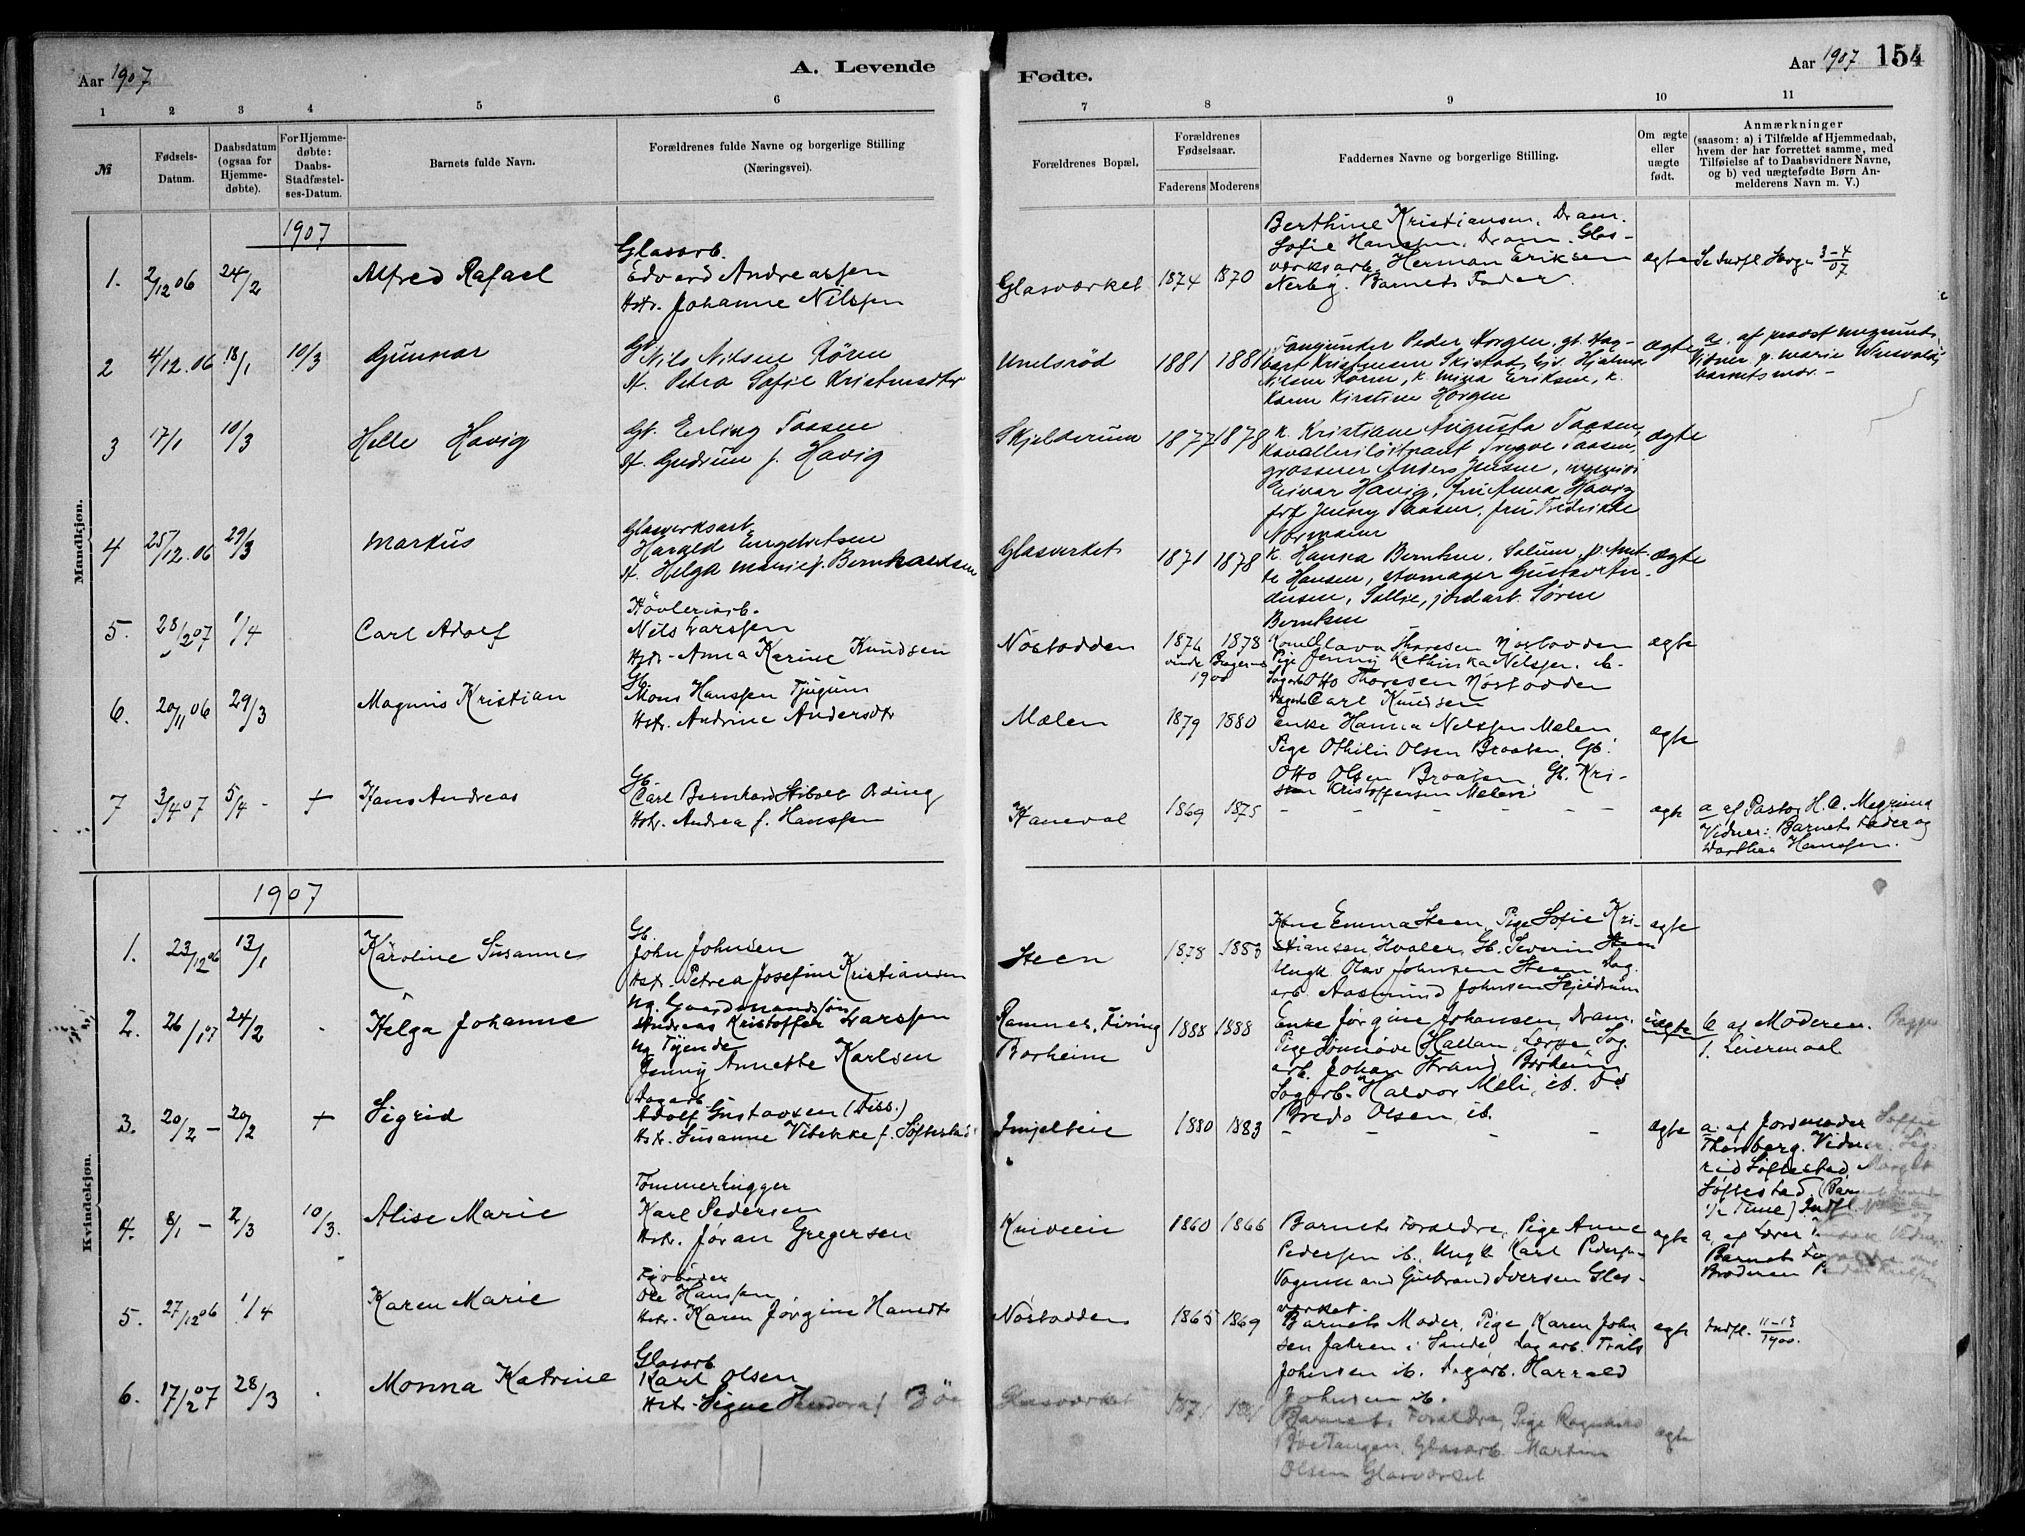 Aar 1907
A. Levende
Fødte.
Aar 1907 154
1 2 3 4 5 6 7 8 9 10 11
№
Fødsels-
Datum.
Daabsdatum
(ogsaa for
Hjemme-
døbte).
For Hjemme-
døbte:
Daabs-
Stadfæstel-
ses-Datum.
Barnets fulde Navn.
Forældrenes fulde Navne og borgerlige Stilling
(Næringsvei).
Forældrenes Bopæl.
Forældrenes
Fødselsaar.
Faderens Moderens
Faddernes Navne og borgerlige Stilling.
Om ægte
eller
uægte
født.
Anmærkninger
(saasom: a) i Tilfælde af Hjemmedaab,
hvem der har forrettet samme, med
Tilføielse af to Daabsvidners Navne,
og b) ved uægtefødte Børn An-
melderens Navn m. V.)
Mandkjøn.
1907
1. 2/12 06 24/2 Alfred Rafael
Glasarb.
Edvard Andreassen
Hstr. Johanne Nilssen
Glasværket 1874 1870
Berthine Kristiansen, Dram.
Sofie Hanssen, Dram. Glas-
værksarb. Herman Eriksen
Nerbg. Barnets Fader.
ægte
3-4/07
2 4/12.06 18/1 10/3 Gunnar
Gb.
Nils Nilsen Rören
H. Petra Sofie Kristensdtr
1881 1881
Nilsen Rören, k. Mina Eriksen, k.
Karen Kirstine Horgen
ægte
barnets mor.-
3 17/1 10/3 Helle Havig
Gb. Erling Taasen
H. Gudrun f. Havig
Skjelderum 1877 1878
k. Kristiane Augusta Taasen,
Kavalleriløitnant Trygve Taasen,
grosserer Anders Jensen,
Einar Havig, fru Anna Havig
frk Jenny Taasen, fru Fredrikke
Normann
ægte
4 25/12.06 29/3 Markus
Glasverksarb.
Harald Engebretsen
H. Helga Marie f. Bernhardsen
Glasverket 1871 1878
k. Hanna Berntsen, Solum, p. Anet-
te Hansen, Gustav An-
dersen, Sollie, jordarb. Sören
Berntsen
ægte
5. 28/2 07 1/4 Carl Adolf
Høvleriarb.
Nils Larssen
Hstr. Anna Karine Knudsen
Nøstodden 1876 1878
1900
Kone Olava Thoresen Nøstodden
Pige Jenny Kathinka Nilssen, ib.
Sagarb Otto Thoresen Nøstodden
Dagarb Carl Knudsen
ægte
6. 20/11 06 29/3 Magnus Kristian
Gb.
Mons Hanssen Tjugum
Hstr. Andrine Andersdtr
Mælen 1879 1880
Enke Hanna Nilssen Mælen
Pige Othilie Olsen Braaten, Gb.
Otto Olsen Braaten, Gb. Kri-
sten Kristoffersen Mælen
ægte
7 3/4 07 5/4 - + Hans Andreas
Gb.
Carl Bernhard Stibolt Oding
Hstr. Andrea f. Hanssen
Haneval 1869 1875 - - - - - - ægte
a af Pastor H. C. Magnus
Vidner: Barnets Fader og
Dorthea Hanssen.
Kvindekjøn.
1907
1. 23/12 06 13/1 Karoline Susanne
Gb.
John Johnsen
Hstr. Petrea Josefine Kristiansen
Steen 1878 1883
Kone Emma Steen, Pige Sofie Kri-
stiansen, Hvaler, Gb. Severin Steen
Ungk. Olav Johnsen Steen, Dag-
arb. Aasmund Johnsen Skjeldrum
ægte
2. 26/1 07 24/2 - Helga Johanne
Ug. Gaardmandssøn
Andreas Kristoffer Larssen
Ug. Tjende
Jenny Annette Karlsen
Ramnes, Firing
Borheim
1888 1888
Enke Jørgine Johansen, Dram.
Pige Hallan, Sag-
arb. Johan Strand, Borheim
Sagarb. Halvor Mæli, ib. Do
Bredo Olsen, ib.
uægte
b af Moderen.
1. Leiermaal
3. 20/2 - 20/2 + Sigrid
Dagarb
Adolf Gustavsen (Diss.)
Hstr. Susanne Vibekke f. Søftestad
Ingelteie 1880 1883 - - - - ægte
a. af Jordemoder Sofie
Thonberg. Vidner: Sig-
rid Søftestad
Søftestad.
4. 8/1 - 2/3 10/3. Alise Marie
Tømmerhugger
Karl Pedersen
Hstr. Jøran Gregersen
Kniveie 1860 1866
Barnets Forældre, Pige Anne
Pedersen ib. Ungk Karl Peders.
Vognmand Gulbrand Iversen Glas-
værket.
ægte
a. af Lærer
Barnets Forældre
Broderen
5. 27/12 06 1/4 Karen Marie
Ole Hanssen
Hstr. Karen Jørgine Hansdtr
Nøstodden 1865 1869
Barnets Moder, Pige Karen John-
sen Jahren i Sande, Dagarb. Trols
Johnsen ib. Dagarb. Harrald
Johnsen ib.
ægte
Indfl. 11-13/1900.
6. 17/2 07 28/3 . Monna Katrine
Glasarb
Karl Olsen
Hstr. Signe
Glasværket 1871
Barnets Forældre, Pige Ragnhild
Glasarb. Martin
Olsen Glasværket
ægte